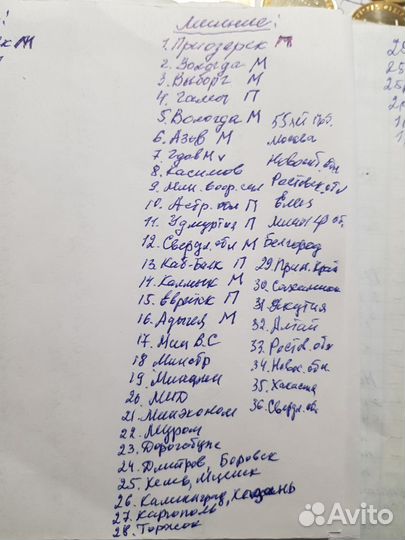 Личные:
1. Приозерск М
2. Вологда М
3. Выборг М
4. Галич П
5. Вологда М
6. Азов М
7. Гдов М
8. Касимов
9. Мин. воор. сил
10. Астр. обл П
11. Удмуртия П
12. Свердл. обл М
13. Каб-Балк П
14. Калмык М
15. Еврейск П
16. Адыгея М
17. Мин В.С
18 Минстр
19. Минюст
20. МИД
21. Минэконом
22. Муром
23. Дорогобуж
24. Дмитров, Боровск
25. Кемь, Мценск
26. Калининград, Казань
27. Каргополь
28. Торжок
55 лет Поб.
Москва
Новосиб. обл
Ростовск. обл
Елец
Белгород
29. Прим. край
30. Сахалинск
31. Якутия
32. Алтай
33. Ростов. обл
34. Новос. обл
35. Хакасия
36. Свердл. обл
Avito